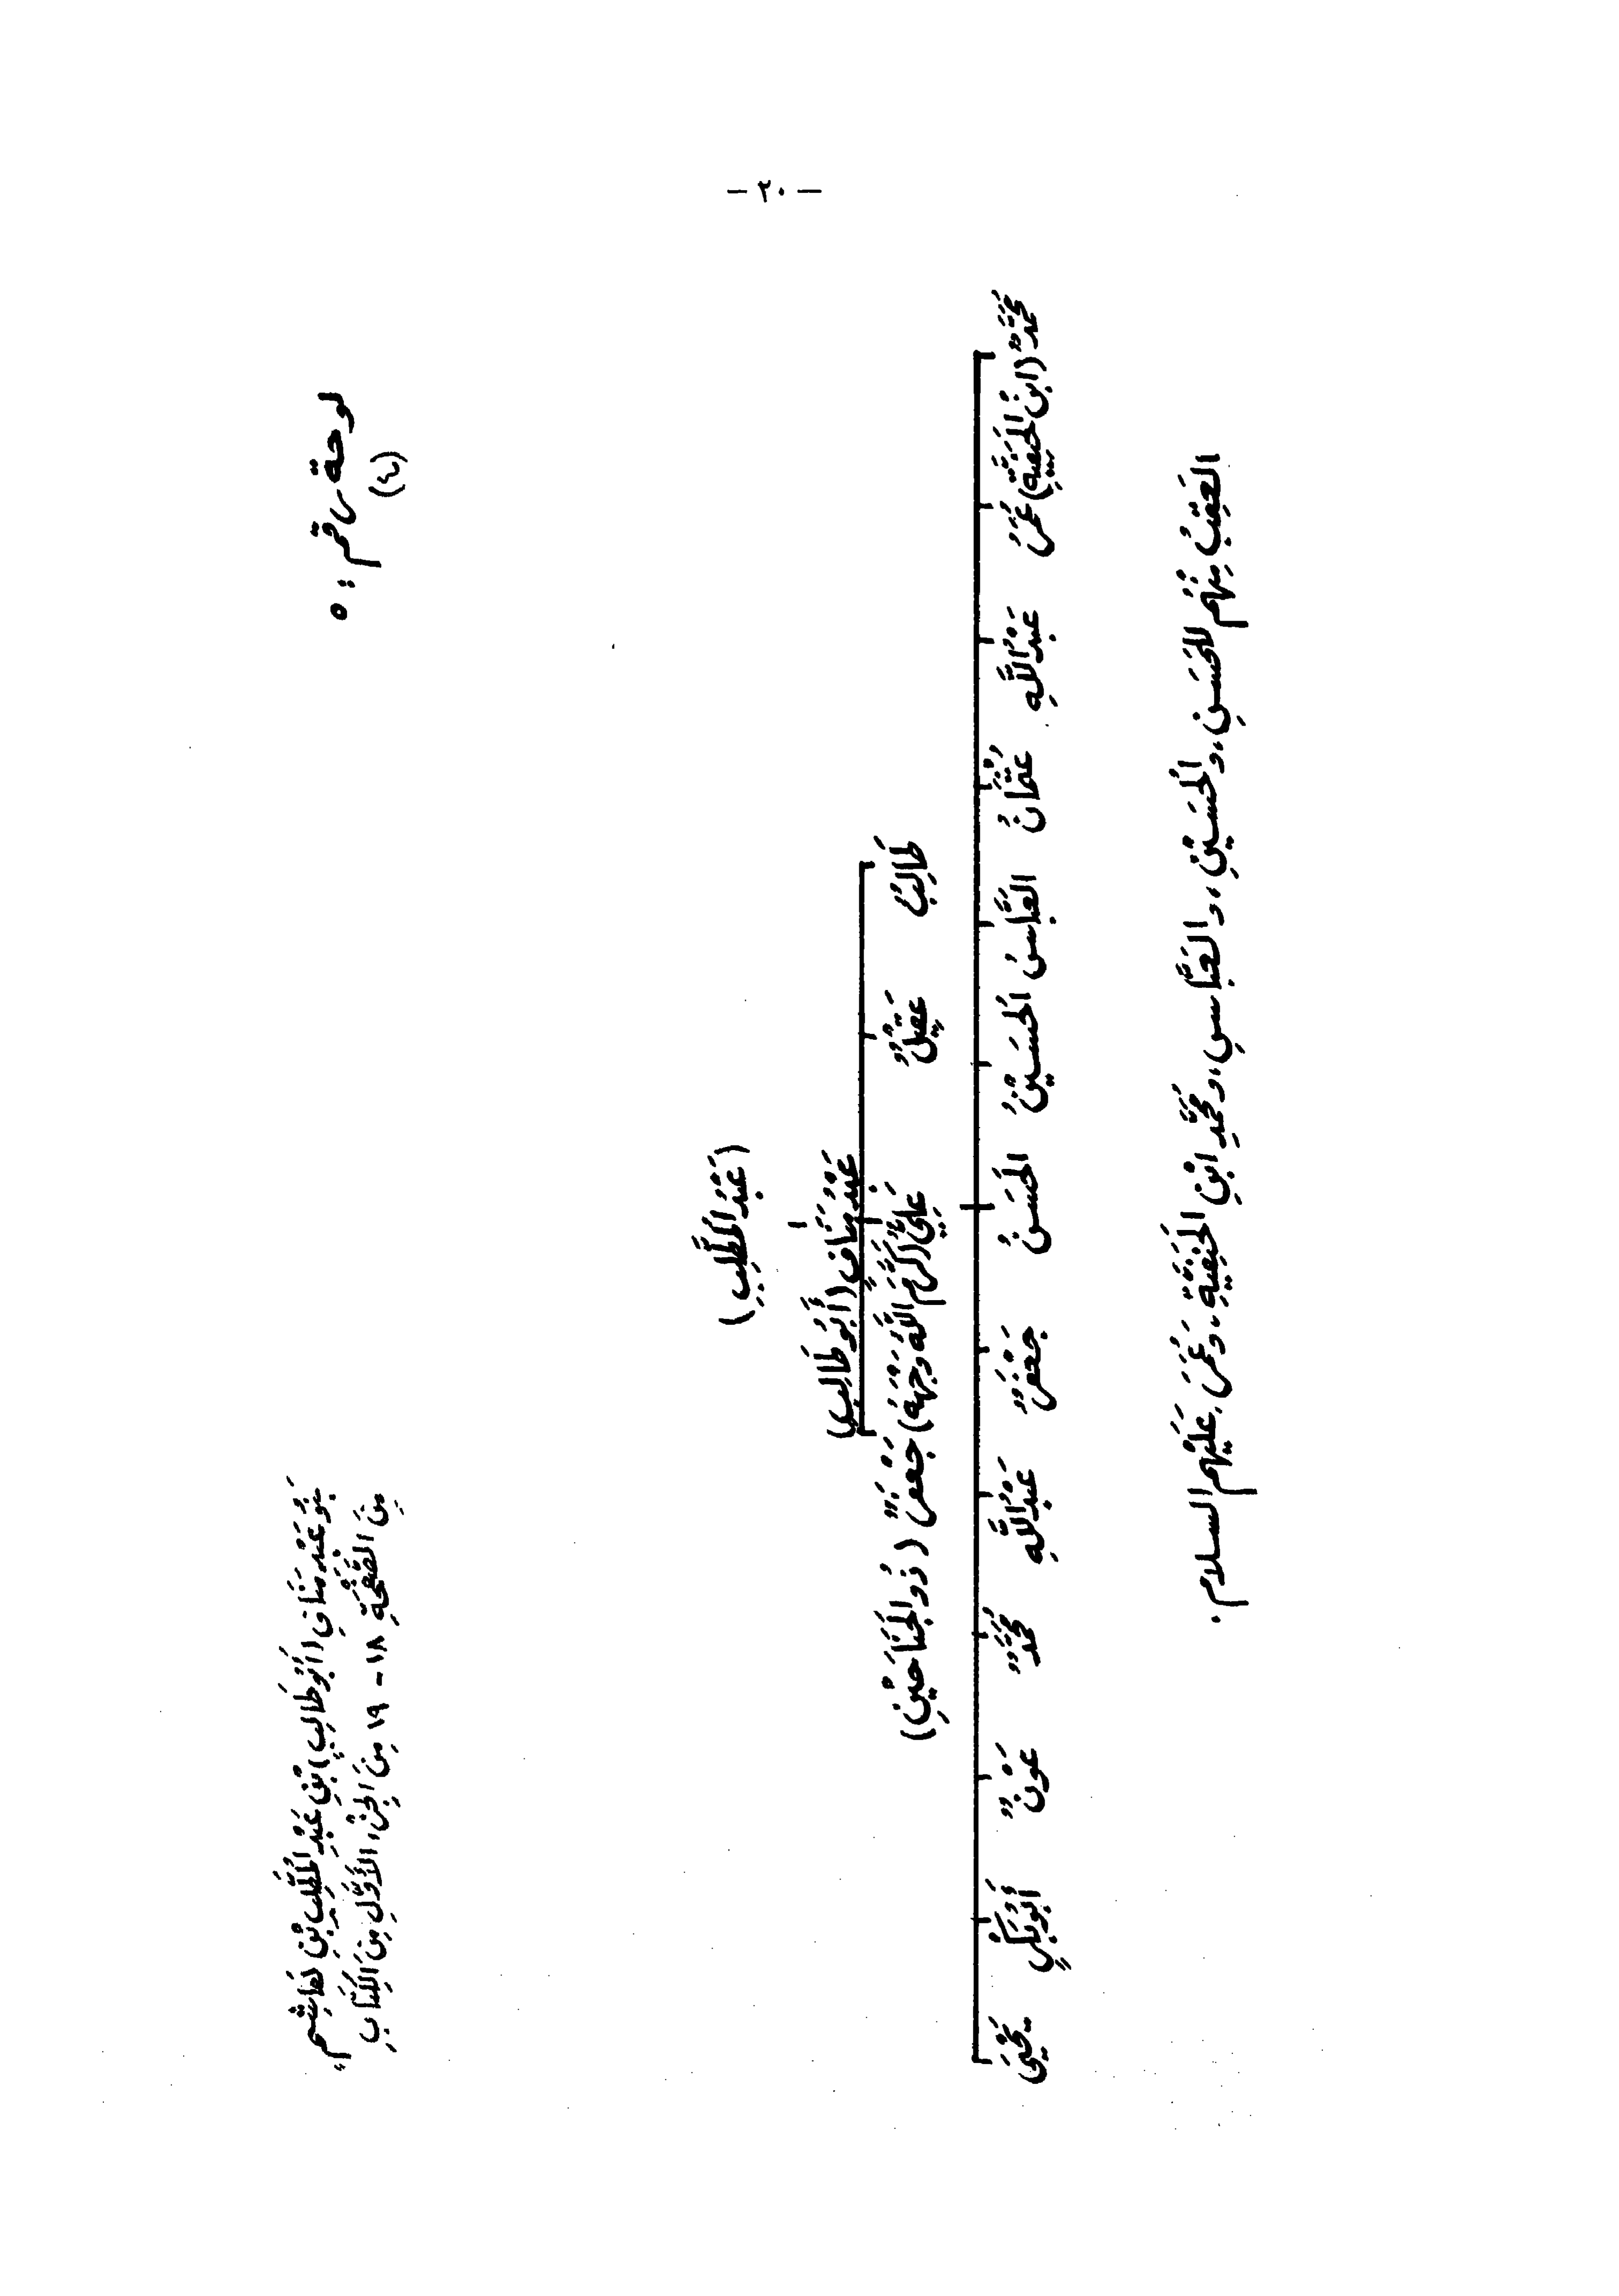 - ٢٠ -
لوحة رقم : ٥
(٤)
بَنُو عَبْدِ مَنَافِ (أَبُو طَالِبٍ) بْنِ عَبْدِ المُطَّلِبِ بْنِ هَاشِمٍ
مِنَ الصَّفْحَةِ ١٨ - ١٩ مِنَ الجُزْءِ الأَوَّلِ مِنَ الكِتَابِ
(عَبْدُ المُطَّلِبِ)
عَبْدُ مَنَافٍ (أَبُو طَالِبٍ)
طَالِبٌ عَقِيلٌ عَلِيٌّ (كَرَّمَ اللَّهُ وَجْهَهُ) جَعْفَرٌ (ذُو الجَنَاحَيْنِ)
مُحَمَّدٌ (ابْنُ الحَنَفِيَّةِ) عُمَرُ عَبْدُ اللَّهِ عُثْمَانُ العَبَّاسُ الحُسَيْنُ الحَسَنُ جَعْفَرٌ عَبْدُ اللَّهِ مُحَمَّدٌ عَوْنٌ أَبُو بَكْرٍ يَحْيَى
العَقِبُ مِنْهُم لِلْحَسَنِ، وَالحُسَيْنِ، وَالعَبَّاسِ، وَمُحَمَّدِ ابْنِ الحَنَفِيَّةِ، وَعُمَرَ، عَلَيْهِم السلام.